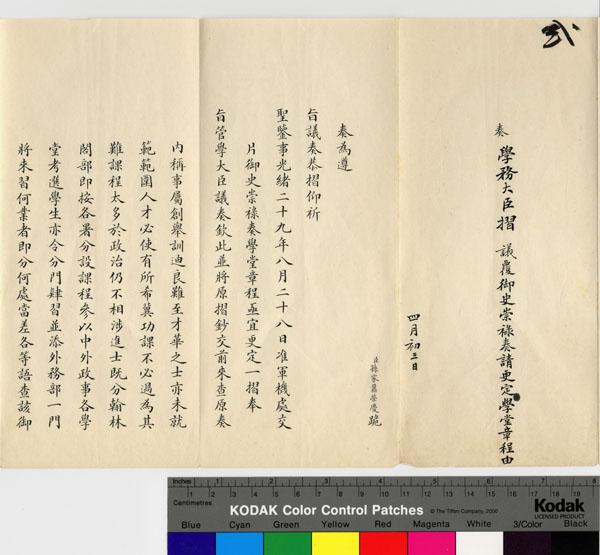 弍
奏 學務大臣摺 議覆御史崇祿奏請更定學堂章程由
四月初三日
臣孫家鼐榮慶跪
奏為遵
旨議奏恭摺仰祈
聖鑒事光緒二十九年八月二十八日准軍機處交
片御史崇祿奏學堂章程亟宜更定一摺奉
旨管學大臣議奏欽此並將原摺鈔交前來查原奏
內稱事屬創舉訓迪良難至才華之士亦未就
範範圍人才必使有所布冀功課不必過為其
難課程太多於政治仍不相涉進士既分翰林
閣部即按各署分設課程參以中外政事各學
堂考選學生亦令分門肄習並添外務部一門
將來習何業者即分何處當差各等語查該御
Inches 1 2 3 4 5 6 7 8
Centimetres 1 2 3 4 5 6 7 8 9 10 11 12 13 14 15 16 17 18 19
KODAK Color Control Patches © The Tiffen Company, 2000 Kodak
LICENSED PRODUCT
Blue Cyan Green Yellow Red Magenta White 3/Color Black